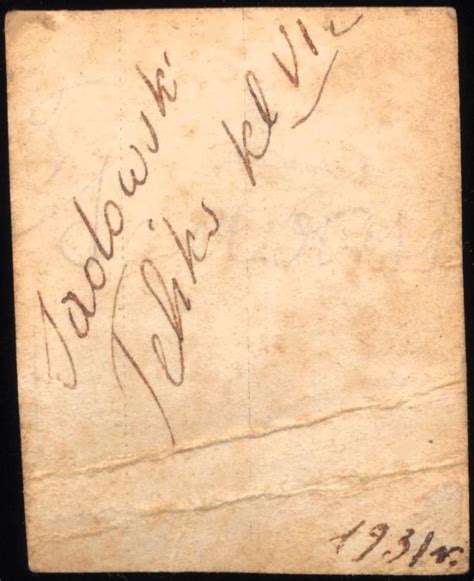 Sadowski
Feliks kl
1931 r.